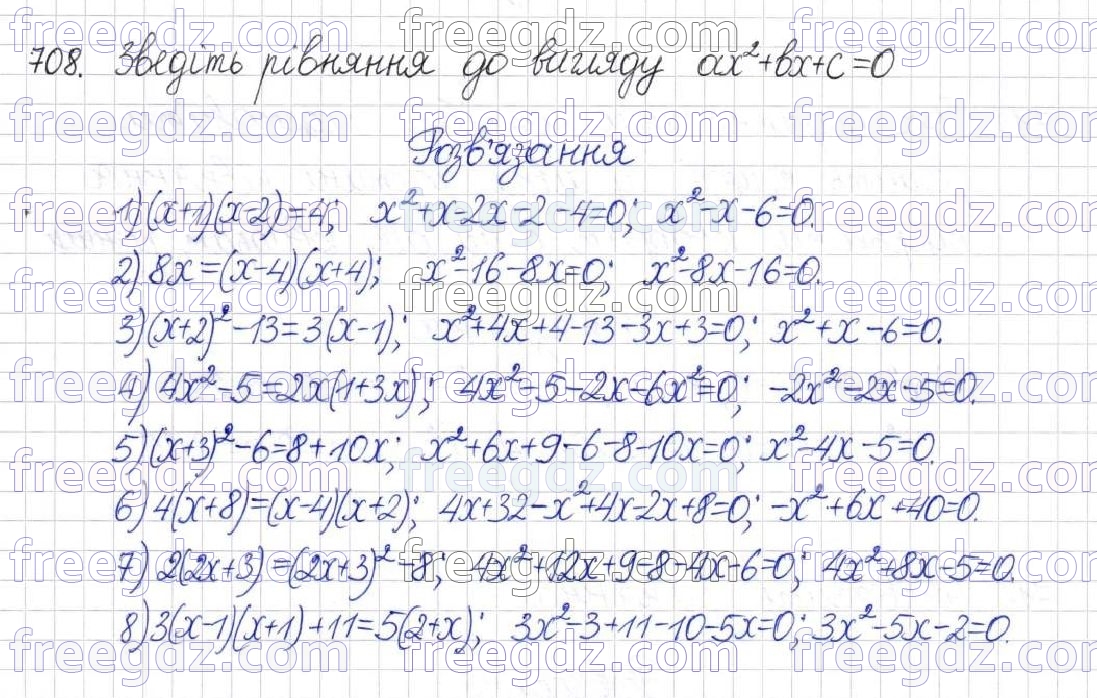 708. Зведіть рівняння до вигляду ax²+bx+c=0
Розв'язання
1) (x+1)(x-2)=4; x²+x-2x-2-4=0; x²-x-6=0.
2) 8x=(x-4)(x+4); x²-16-8x=0; x²-8x-16=0.
3) (x+2)²-13=3(x-1); x²+4x+4-13-3x+3=0; x²+x-6=0.
4) 4x²-5=2x(1+3x); 4x²-5-2x-6x²=0; -2x²-2x-5=0.
5) (x+3)²-6=8+10x; x²+6x+9-6-8-10x=0; x²-4x-5=0.
6) 4(x+8)=(x-4)(x+2); 4x+32-x²+4x-2x+8=0; -x²+6x+40=0.
7) 2(2x+3)=(2x+3)²-8; 4x²+12x+9-8-4x-6=0; 4x²+8x-5=0.
8) 3(x-1)(x+1)+11=5(2+x); 3x²-3+11-10-5x=0; 3x²-5x-2=0.
freegdz.com